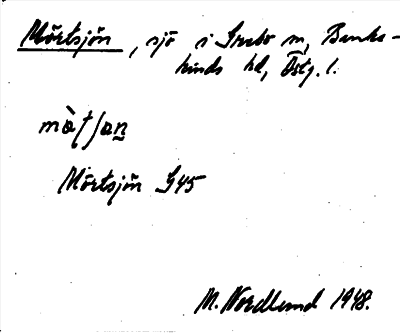 Mörtsjön, sjö i Grebo sn, Banke-
kinds hd, Östg. l.
mö̀tʃan̲
Mörtsjön G45
M. Nordlund 1948.